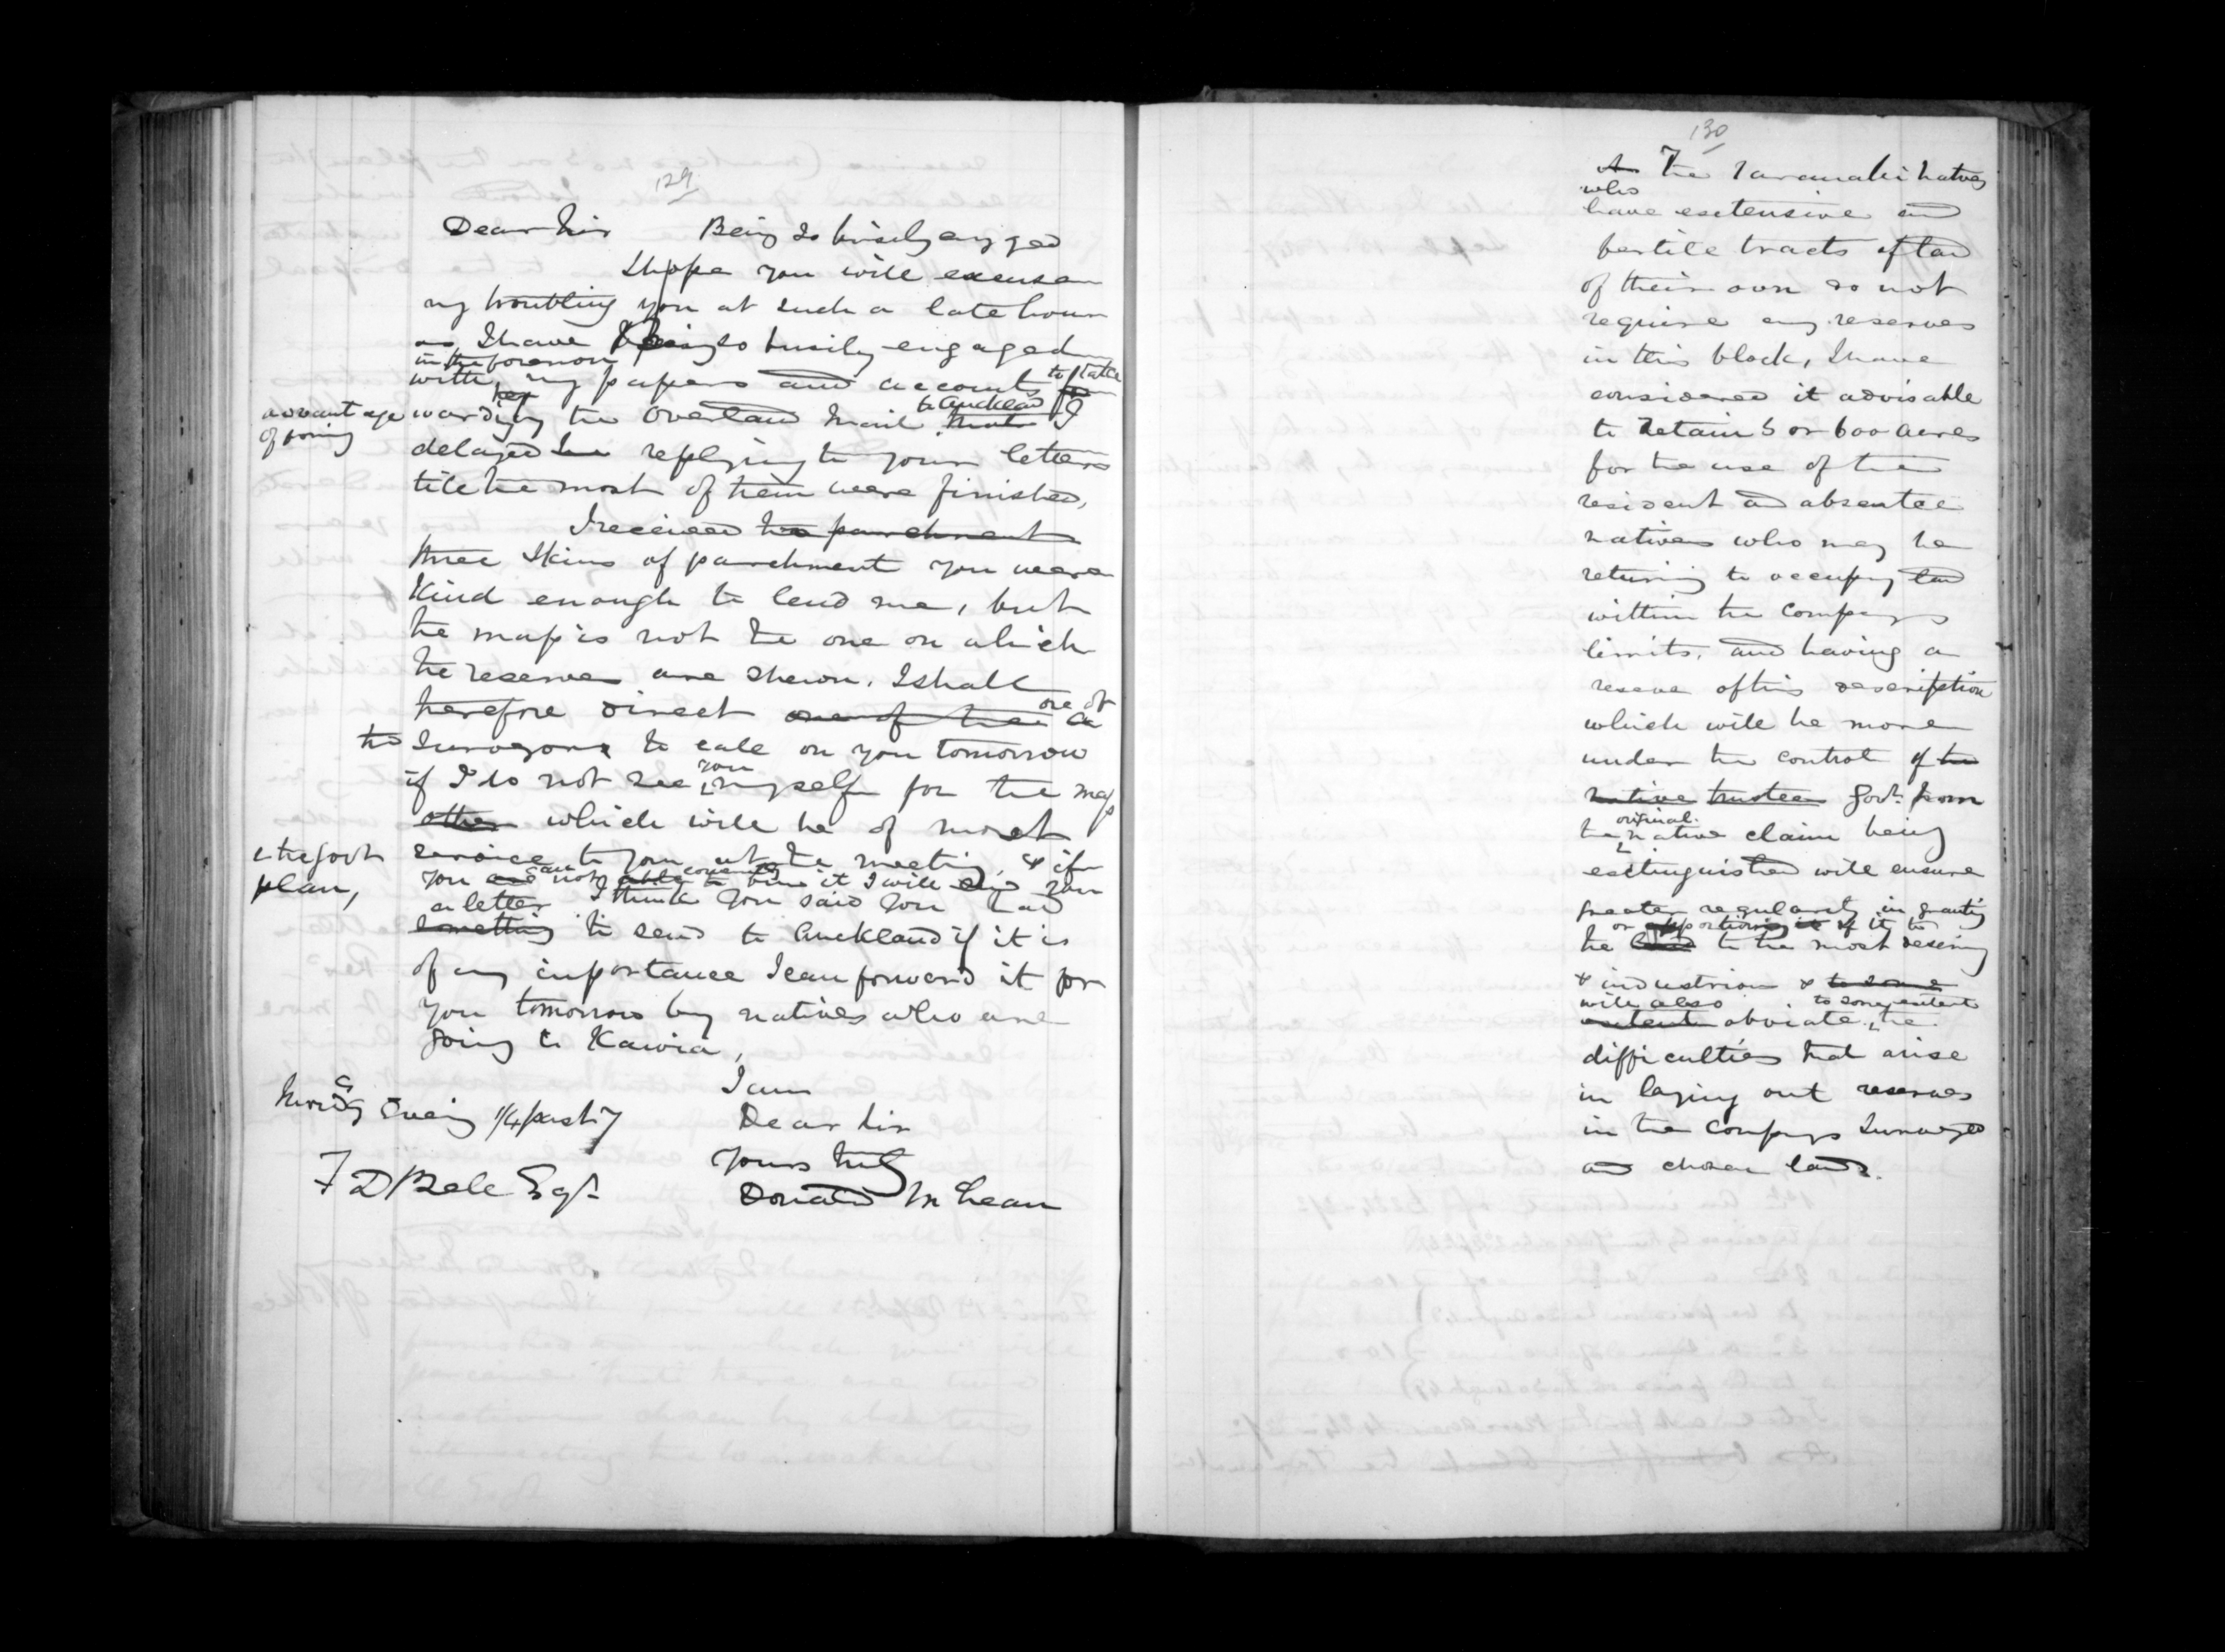 129
Dear Sir Being so busily engaged
I hope you will excuse
my troubling you at such a late hour
as I have being so busily engaged
in the forenoon
with my papers and accounts to take
advantage
of going
by the Overland Mail to Auckland I
delayed replying to your letters
till the most of them were finished,
I received two parchment
three skins of parchment you were
Kind enough to lend me, but
the map is not the one on which
the reserves are shewn. I shall
therefore direct one of the one of
the Surveyors to call on you tomorrow
if I do not see you myself for the map
other which will be of most
& the Govt
plan,
service to you at the meeting, & if
you are can not able to conveniently bring it I will you
a letter I think you said you had
something to send to Auckland if it is
of any importance I can forward it for
you tomorrow by natives who are
going to Kawia,
I am
Evening 1/4 past 7
Dear Sir
Yours truly
F D Bell Esqr
Donald McLean
130
As The Taranaki natives
who
have extensive and
fertile tracts of land
of their own do not
require any reserves
in this block, I have
considered it advisable
to retain 5 or 600 acres
for the use of the
resident and absentee
natives who may be
returning to occupy land
within the Companys
limits. and having a
reserve of this description
which will be more
under the control of the
native trustees Govt. from
the original native claim being
extinguished will ensure
greater regularity in granting
or apportioning it of it to
the land to the most deserving
& industrious & to some
will also to some extent
extent obviate the
difficulties that arise
in laying out reserves
in the Companys Surveyed
and chosen lands.